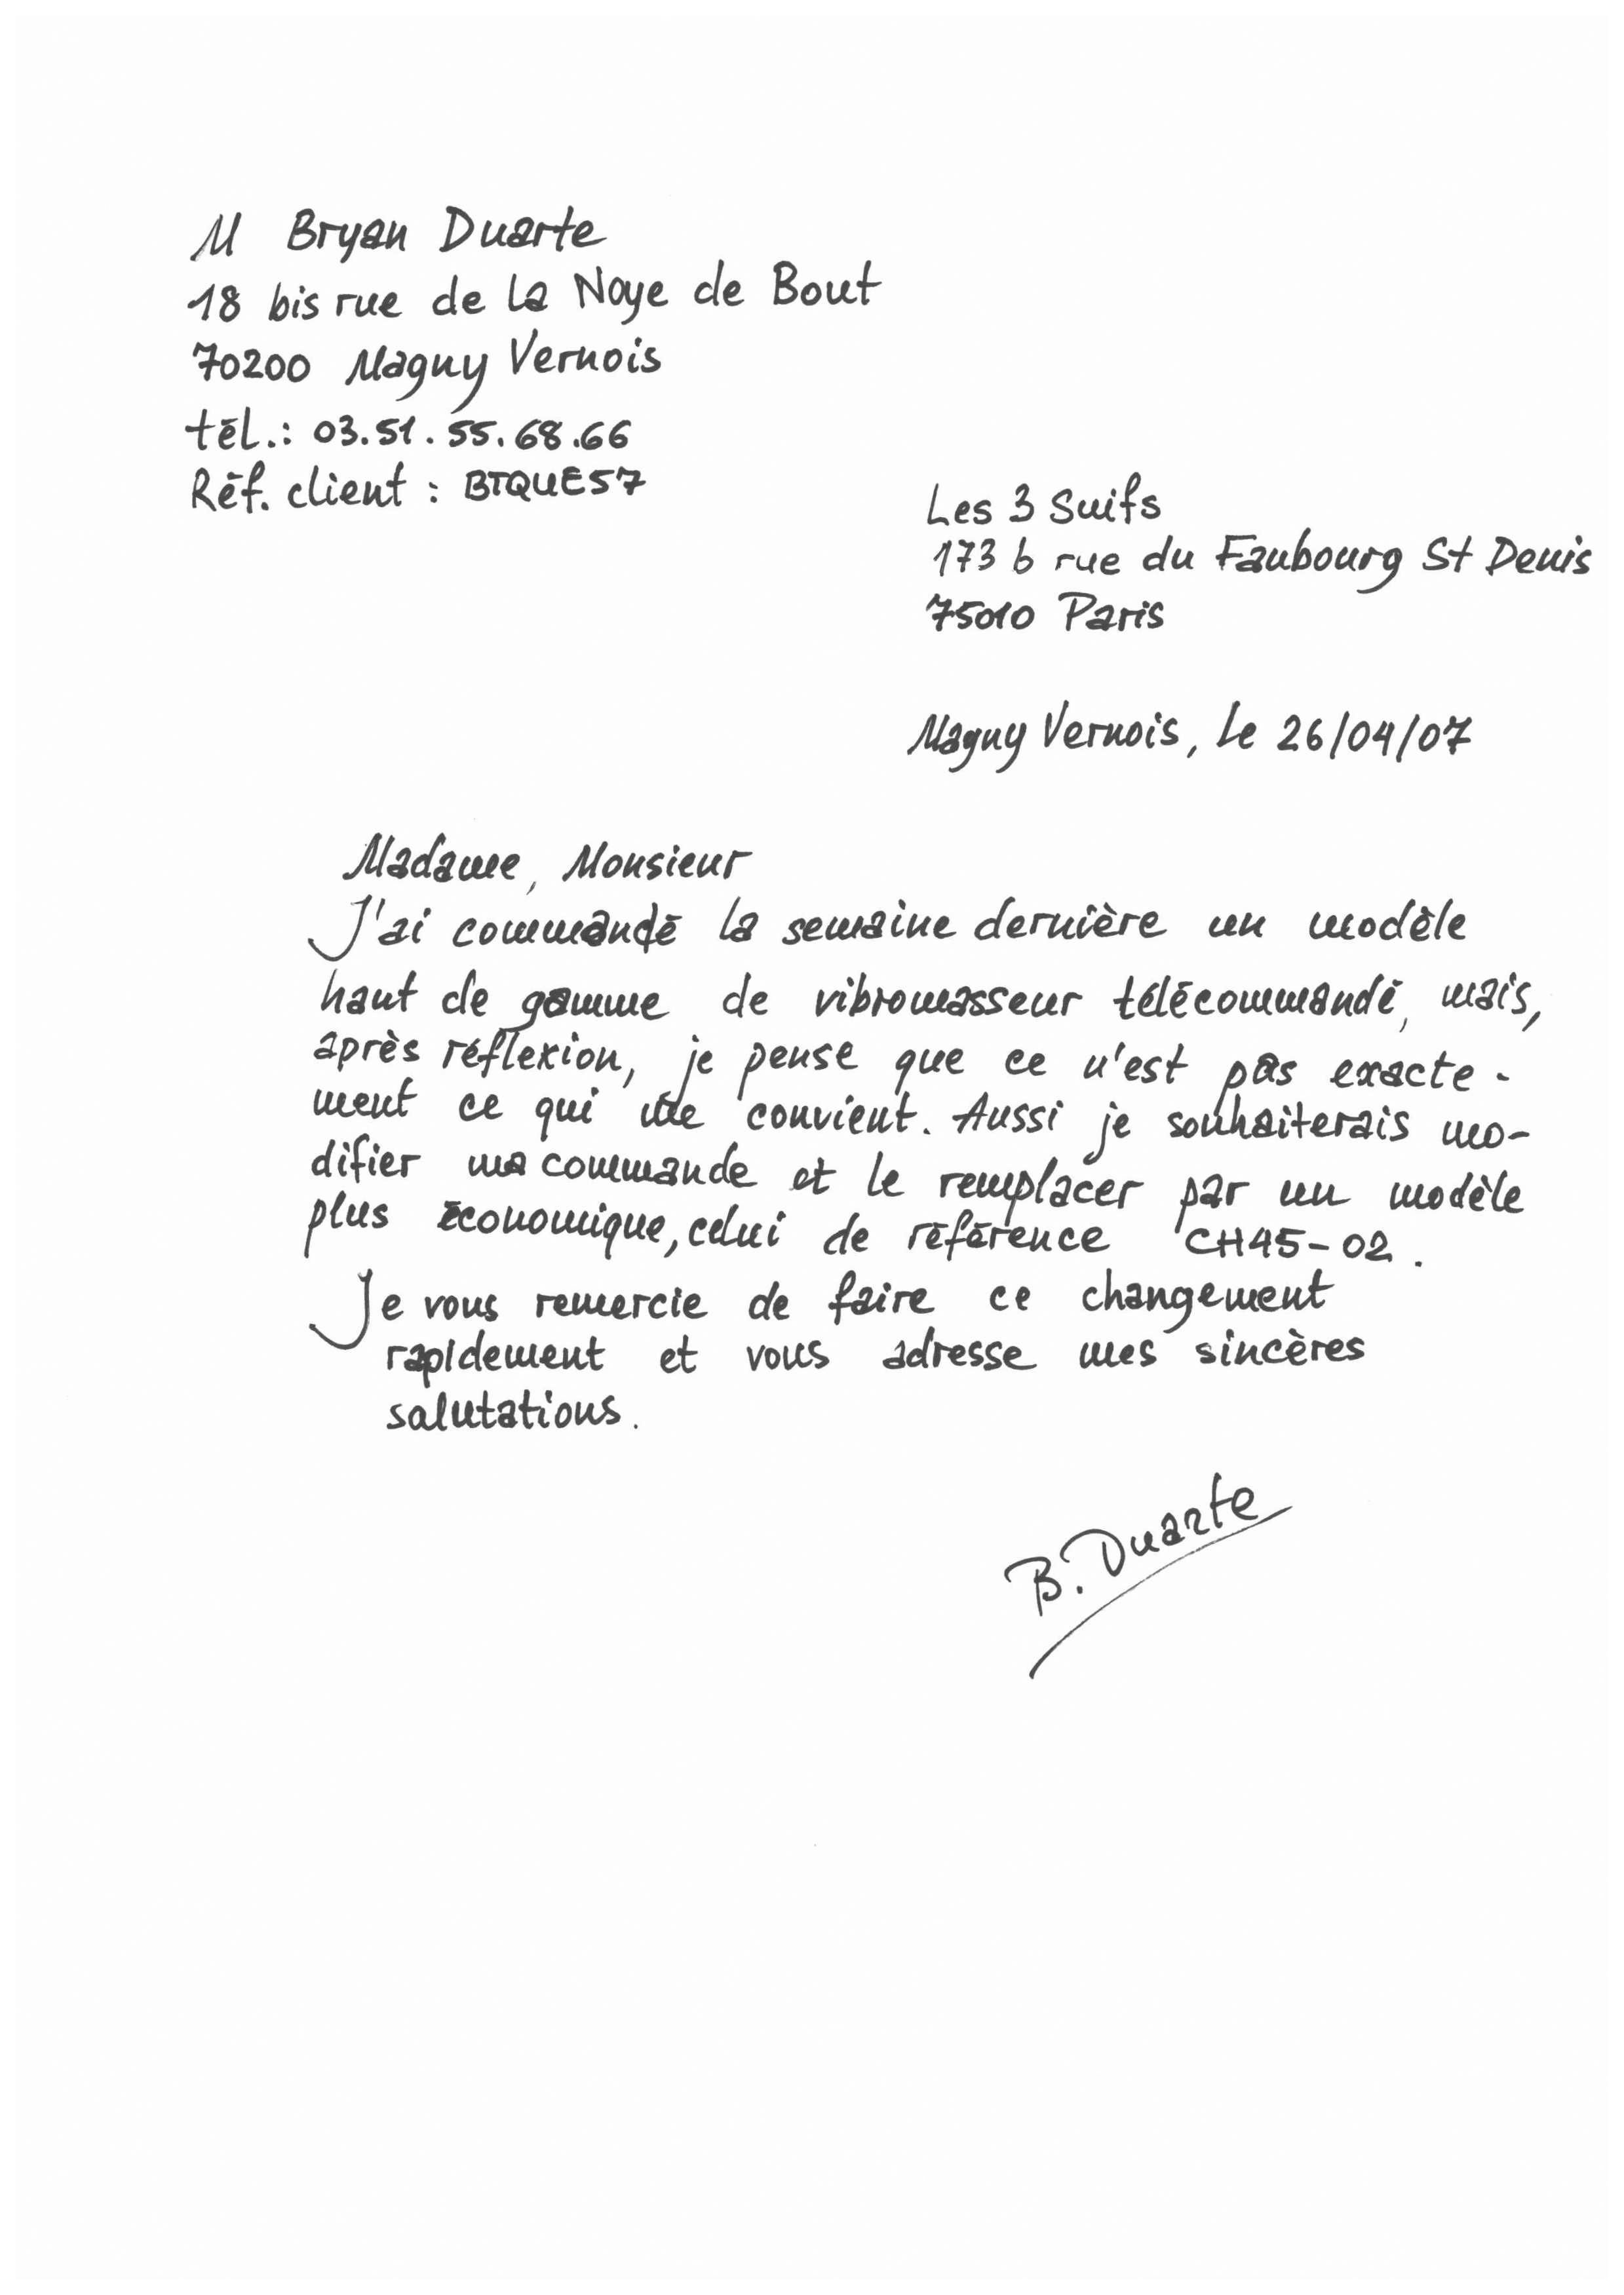 M Bryan Duarte
18 bis rue de la Noye de Bout
70200 Magny Vernois
tél.: 03.51.55.68.66
Réf. client : BTQUE57
Les 3 Suifs
173 b rue du Faubourg St Denis
75010 Paris
Magny Vernois, le 26/04/07
Madame, Monsieur
J'ai commandé la semaine dernière un modèle
haut de gamme de vibromasseur télécommandé, mais,
après réflexion, je pense que ce n'est pas exacte-
ment ce qui me convient. Aussi je souhaiterais mo-
difier ma commande et le remplacer par un modèle
plus économique, celui de référence CH45-02.
Je vous remercie de faire ce changement
rapidement et vous adresse mes sincères
salutations.
B. Duarte